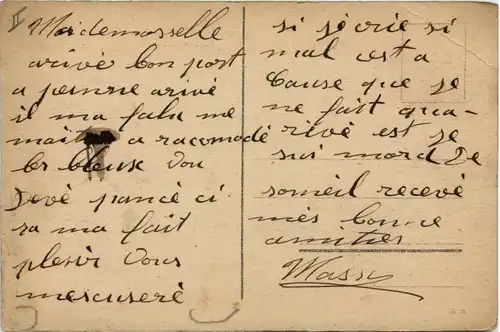 II
Mademosselle
arivé bon port
a peinne arivé
il ma falu me
maitre a racomodé
les bleux Vou
Devé pancé ci
sa ma fait
plesir Vous
mescuseré
si jécrie si
mal est a
Cause que je
ne fait qua-
rivé est je
sui mord De
someil recevé
mes bonne
amitiés
Massy